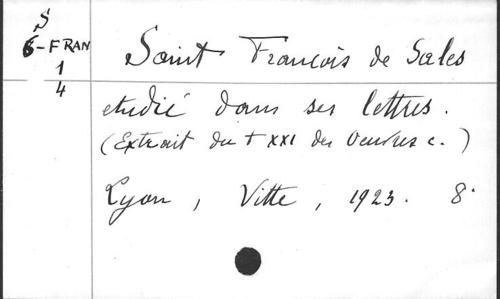 S
6-FRAN
1
4
Saint François de Sales
etudié dans ses lettres.
(Extrait du t XXI des Oeuvres c.)
Lyon, Vitte, 1923. 8°